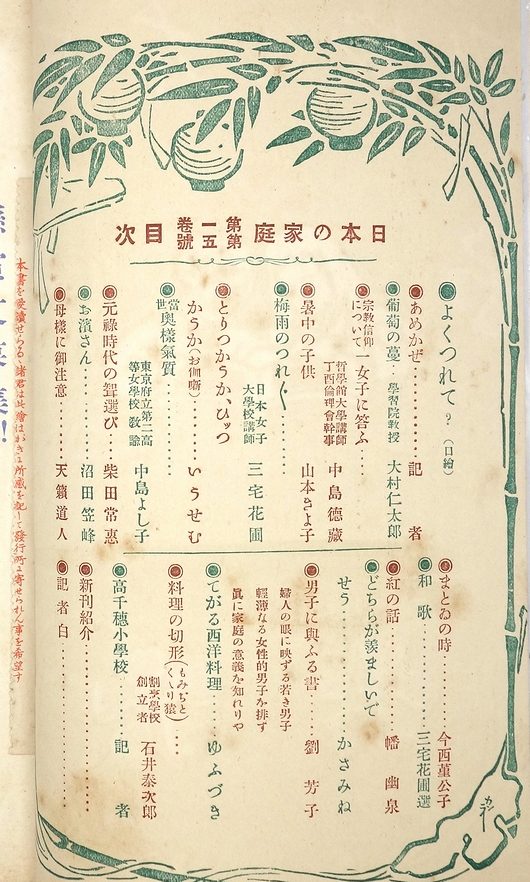 日本の家庭 第一卷 第五號 目次
よくつれて？（口繪）
あめかぜ 記者
葡萄の蔓 學習院教授 大村仁太郎
宗教信仰について 一女子に答ふ 哲學館大學講師 丁酉倫理會幹事 中島德藏
暑中の子供 山本きよ子
梅雨のつれ〴〵 日本女子大學校講師 三宅花圃
とりつかうか、ひッつ
かうか（お伽噺） いうせむ
當世奧樣氣質 東京府立第二高等女學校教諭 中島よし子
元祿時代の聟選び 柴田常惠
お濱さん 沼田笠峰
母樣に御注意 天籟道人
まとゐの時 今西菫公子
和歌 三宅花圃選
紅の話 幡幽泉
どちらが羨ましいで
せう かさみね
男子に與ふる書 劉芳子
婦人の眼に映ずる若き男子
輕薄なる女性的男子を排す
眞に家庭の意義を知れりや
てがる西洋料理 ゆふづき
料理の切形（もみぢとくゝり猿） 割烹學校創立者 石井泰次郎
高千穗小學校 記者
新刊紹介
記者白
本書を愛讀せらるゝ諸君は此繪はがきに所感を記して發行所に寄せられん事を希望す